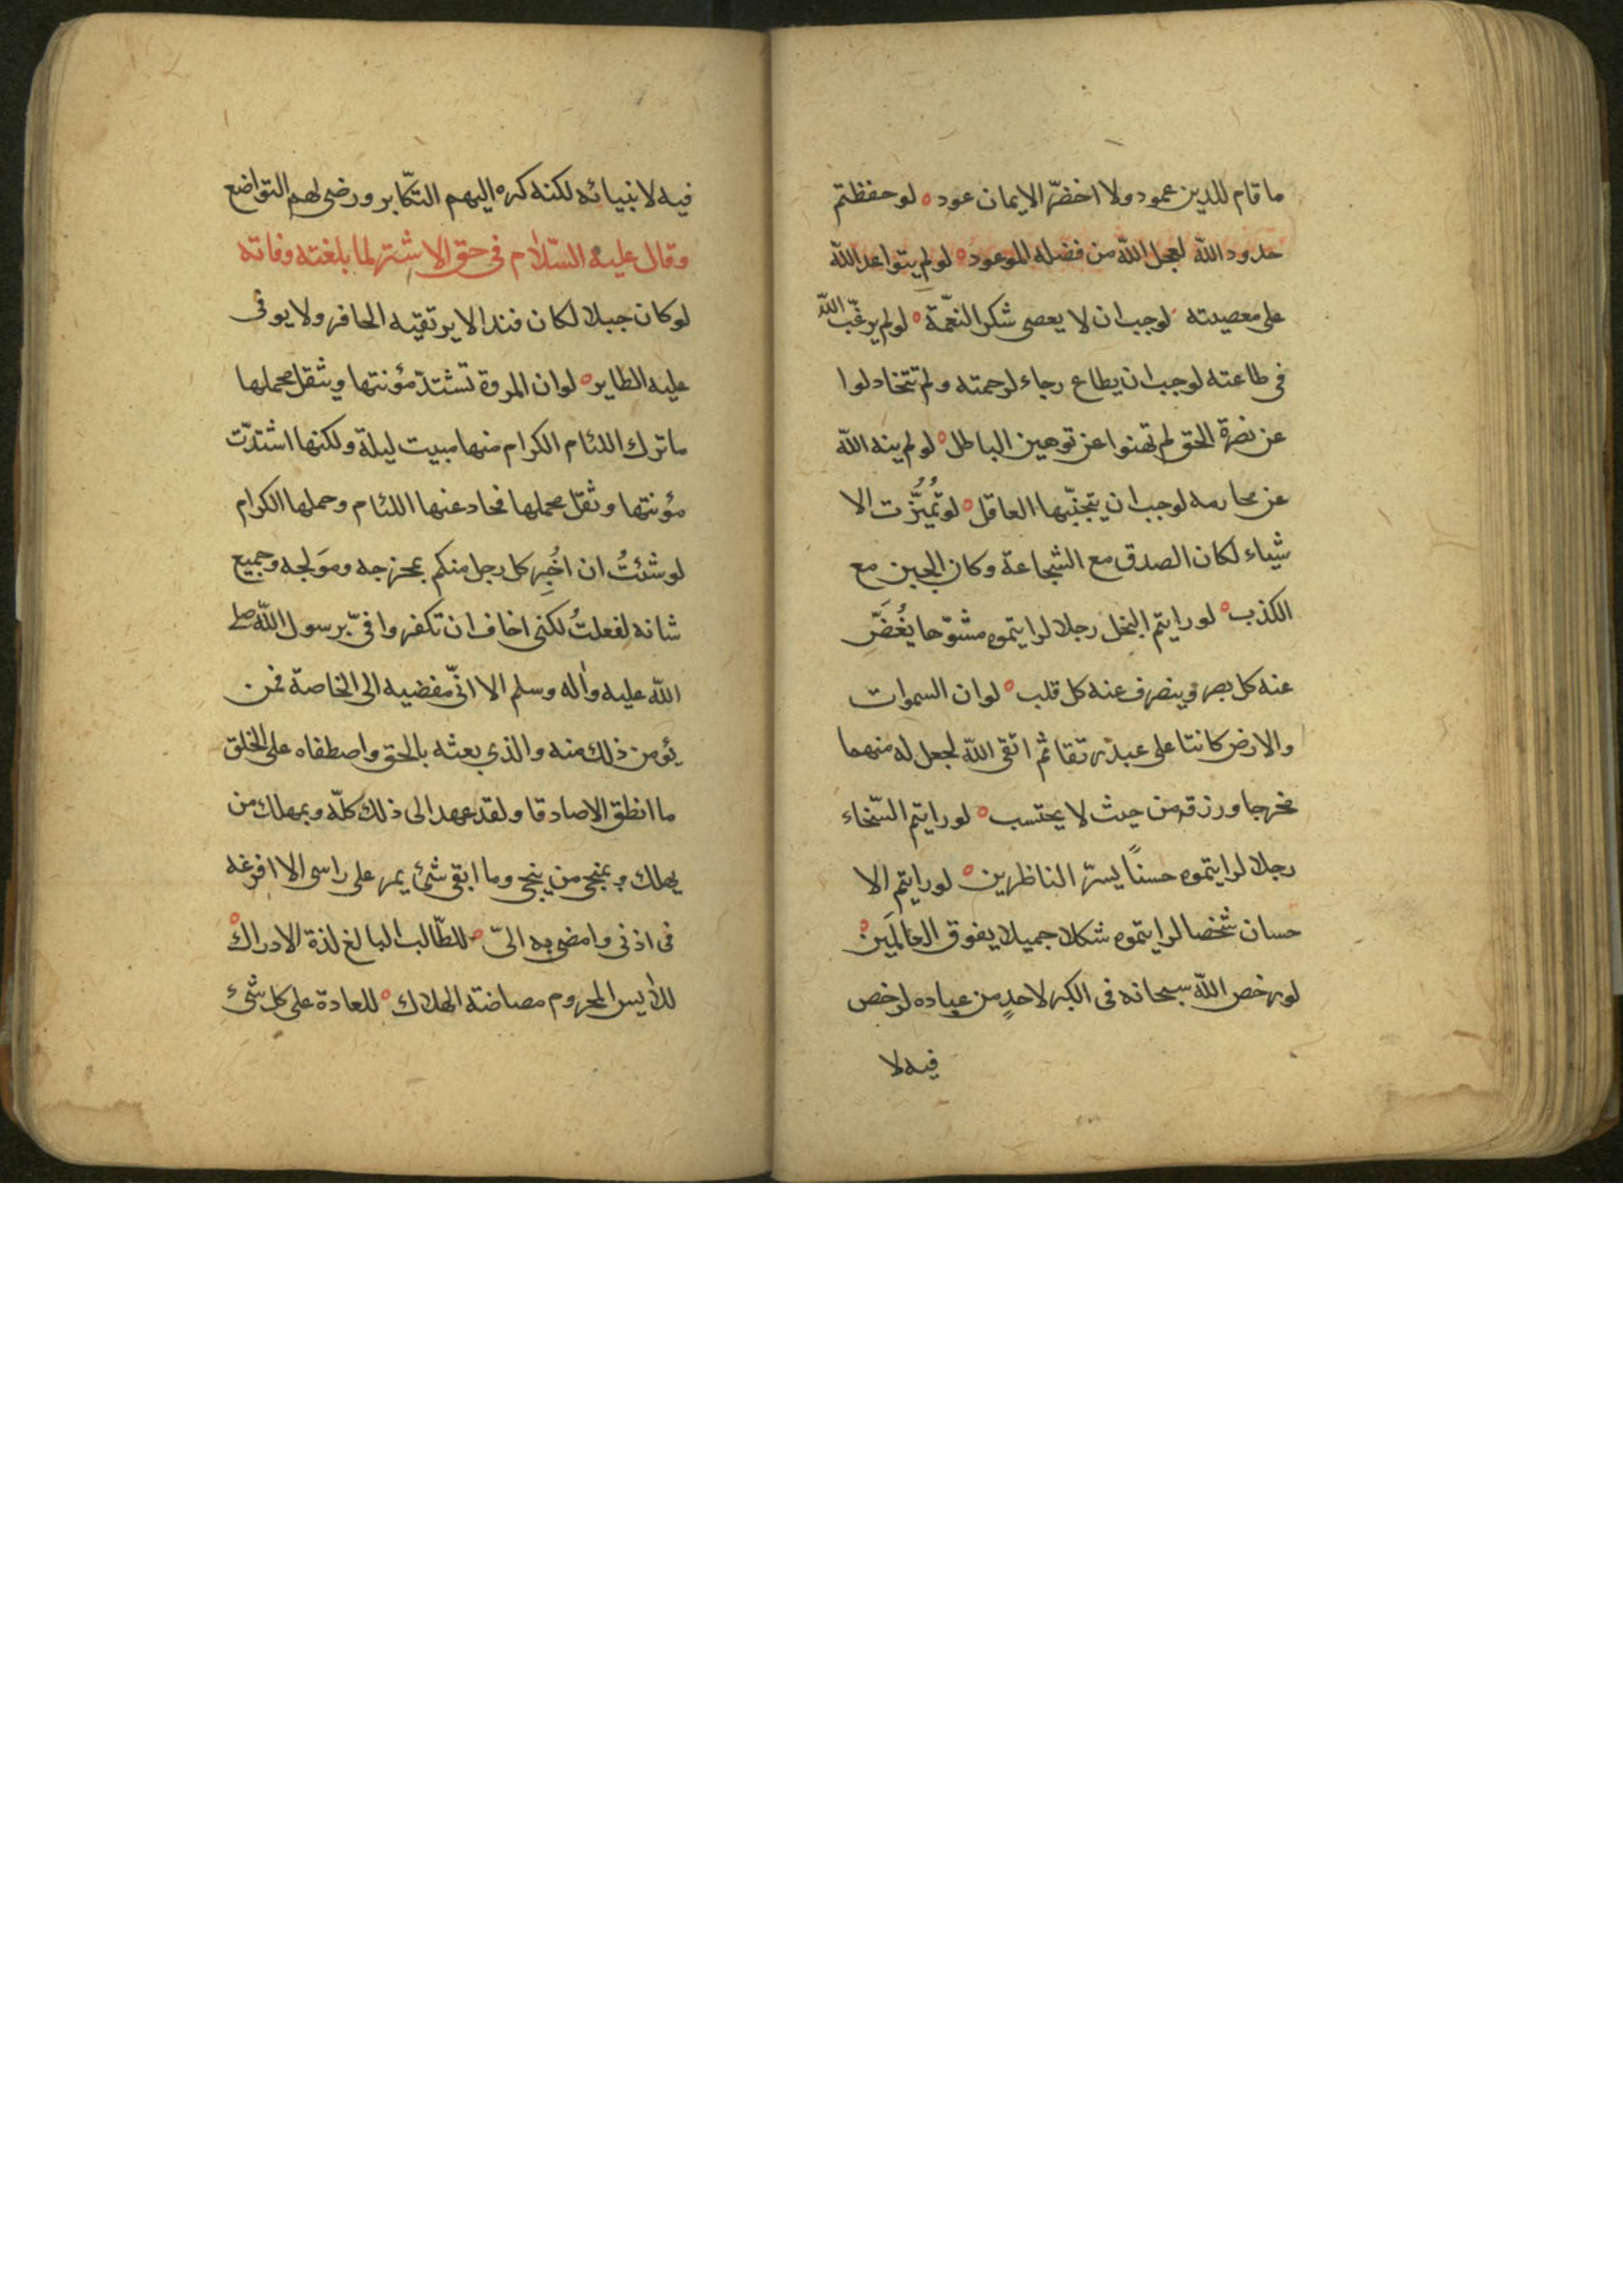 ما قام للدين عمود ولا اخضرّ الايمان عود ه لو حفظتم
حدود الله لعجل الله من فضله الموعود ه لو لم يتواعد الله
على معصيته لوجب ان لا يعصى شكر النعمة ه لو لم يرغّب الله
فى طاعته لوجب ان يطاع رجاء لرحمته ولم تتخادلوا
عن نصرة الحق لم تهنوا عن توهين الباطل ه لو لم ينه الله
عن محارمه لوجب ان يتجنّبها العاقل ه لو تميّزت الا
شياء لكان الصدق مع الشجاعة وكان الجبن مع
الكذب ه لو رايتم البخل رجلا لرايتموه مشوّها يُغَضّ
عنه كل بصر وينصرف عنه كل قلب ه لو ان السموات
والارض كانتا على عبد رتقا ثم اتقى الله لجعل له منهما
مخرجا ورزقه من حيث لا يحتسب ه لو رايتم السّخاء
رجلا لرايتموه حسنًا يسرّ الناظرين ه لو رايتم الا
حسان شخصا لرايتموه شكلا جميلا يفوق العالمَين ه
لو رخص الله سبحانه فى الكبر لاحدٍ من عباده لرخص
فيه لا
فيه لانبيائه لكنه كره اليهم التكّابر ورضى لهم التواضع
وقال عليه السّلام فى حق الاشتر لما بلغته وفاته
لو كان جبلا لكان فندا لا يرتقيه الحافر ولا يوفى
عليه الطاير ه لو ان المروة تشتدّ مؤنتها ويثقل محملها
ما ترك اللئام الكرام منها مبيت ليلة ولكنها اشتدّت
مؤنتها وثقل محملها فحاد عنها اللئام وحملها الكرام
لو شئتُ ان اخُبِر كل رجل منكم بمخرجه ومَولجه وجميع
شانه لفعلتُ لكنى اخاف ان تكفروا فىّ برسول الله صلى
الله عليه واٰله وسلم الا انّى مفضيه الى الخاصة فمن
يؤمن ذلك منه والذي بعثه بالحق واصطفاه على الخلق
ما انطق الا صادقا ولقد عهد الى ذلك كلّه وبمهلك من
يهلك وبمنجى من ينجى وما ابقى شئ يمر على راسى الا افرغه
فى اذنى وامضى به الىّ ه للطّالب البالغ لذة الادراك ه
للايس المحروم مضاضة الهلاك ه للعادة على كل شئ